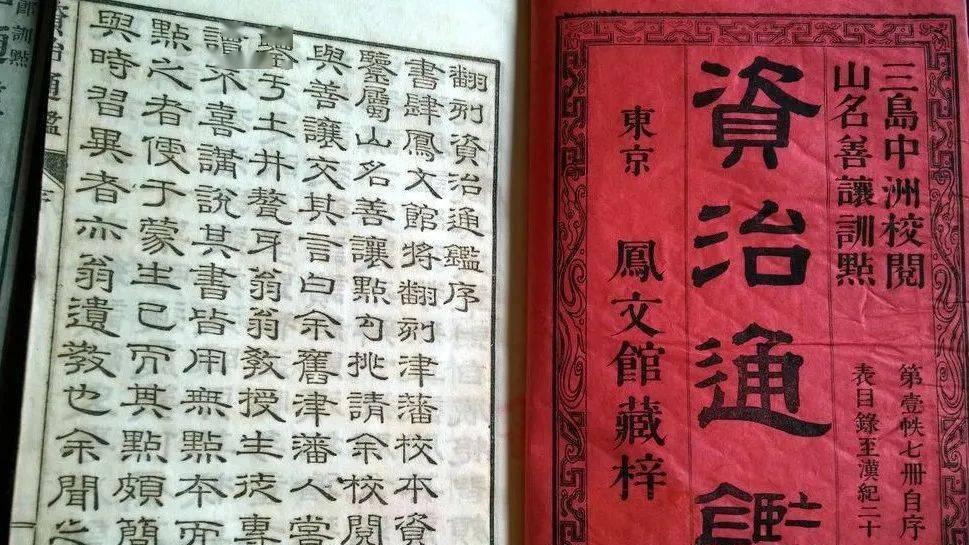 三島中洲校閱
山名善讓訓點
第壹帙七册自序
表目錄至漢紀二十
資治通鑑
東京 鳳文館藏梓
翻刻資治通鑑序
書肆鳳文館將翻刻津藩校本資
鑒屬山名善讓點句挑請余校閱
與善讓文其言曰余舊津藩人嘗
于土井聱牙翁翁教授生徒專
讀不喜講說其書皆用無點本而
點之者便于蒙生已而其點頗簡
與時習異者亦翁遺教也余聞之
治通鑑
訓點